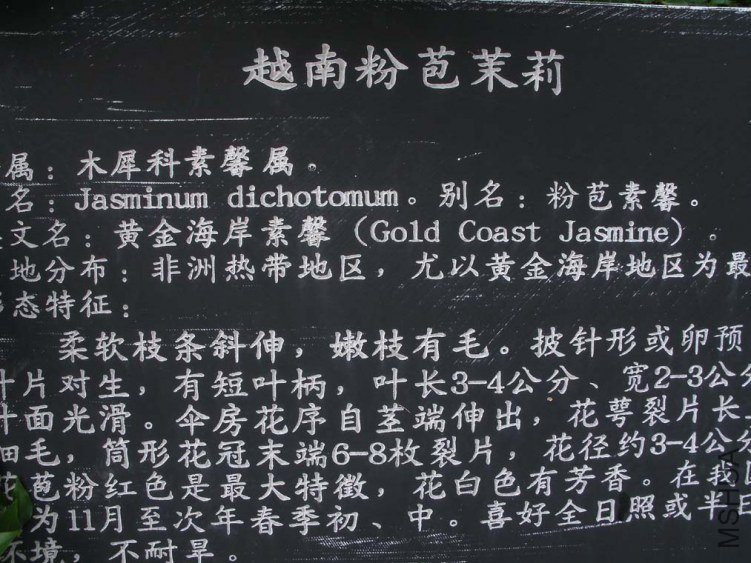 越南粉苞茉莉
属：木犀科素馨属。
名：Jasminum dichotomum。别名：粉苞素馨。
文名：黄金海岸素馨（Gold Coast Jasmine）。
地分布：非洲热带地区，尤以黄金海岸地区为最
态特征：
柔软枝条斜伸，嫩枝有毛。披针形或卵预
叶片对生，有短叶柄，叶长3-4公分、宽2-3公分
叶面光滑。伞房花序自茎端伸出，花萼裂片长
细毛，筒形花冠末端6-8枚裂片，花径约3-4公分
花苞粉红色是最大特徵，花白色有芳香。在我
为11月至次年春季初、中。喜好全日照或半日
环境，不耐旱。
MSHUA